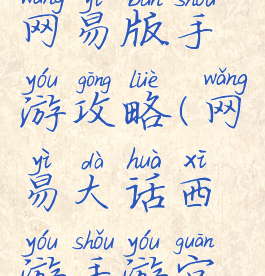 wǎng yì bǎn shǒu
网易版手
yóu gōng lüè wǎng
游攻略(网
yì dà huà xī
易大话西
yóu shǒu yóu guān
游手游官